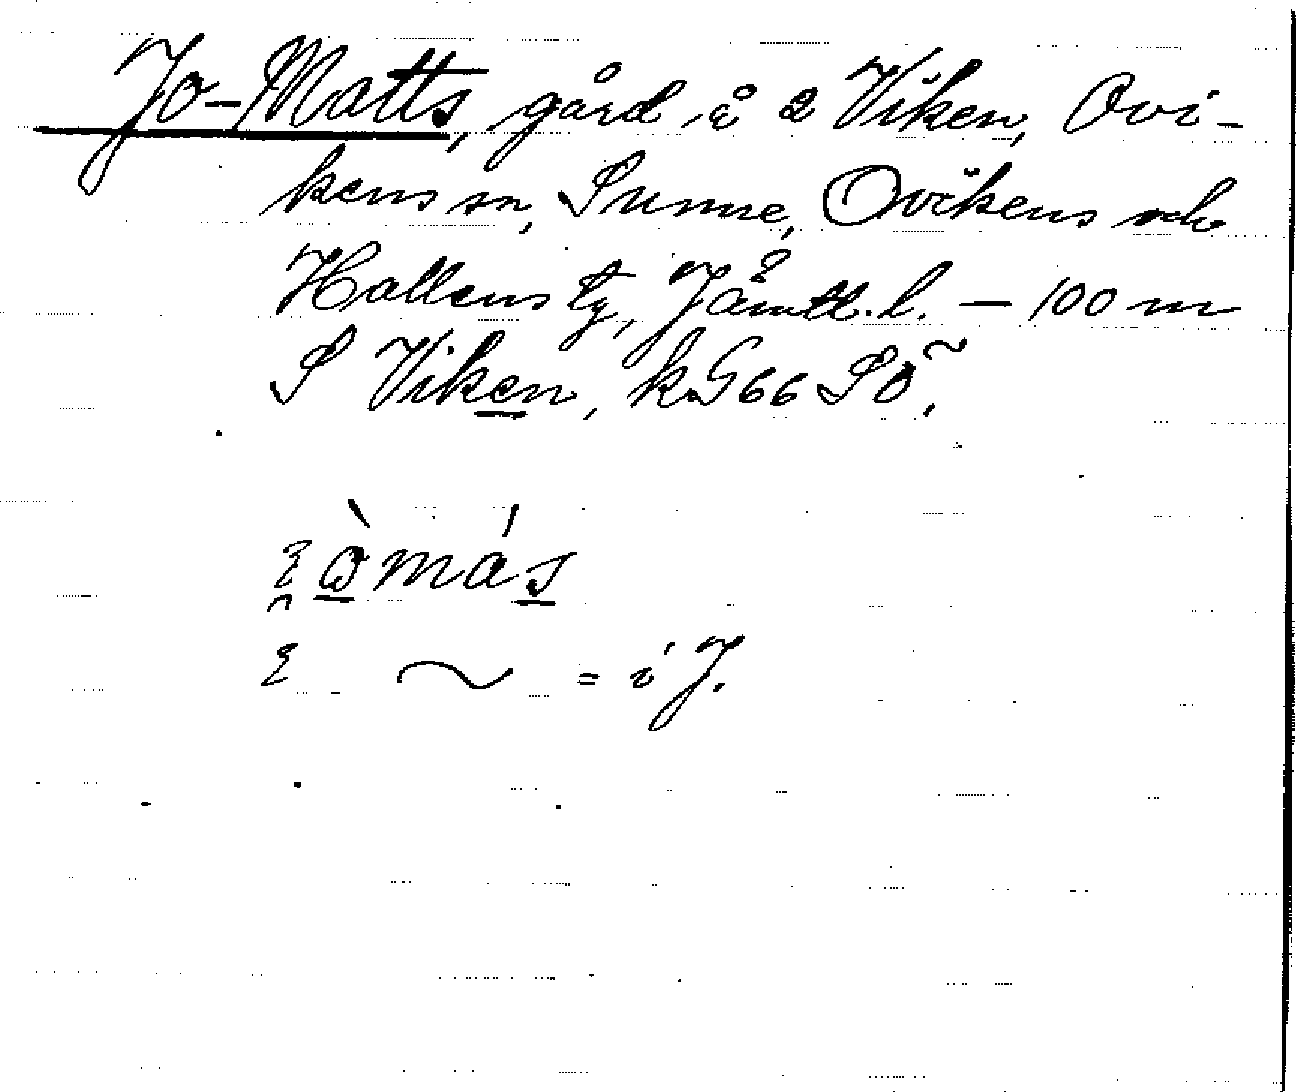 Jo-Matts, gård å 2 Viken, Ovi-
kens sn, Sunne, Ovikens och
Hallens tg, Jämtl. l. — 100 m
S Viken, k. G66 SÖ.
òmás
~ = i J.